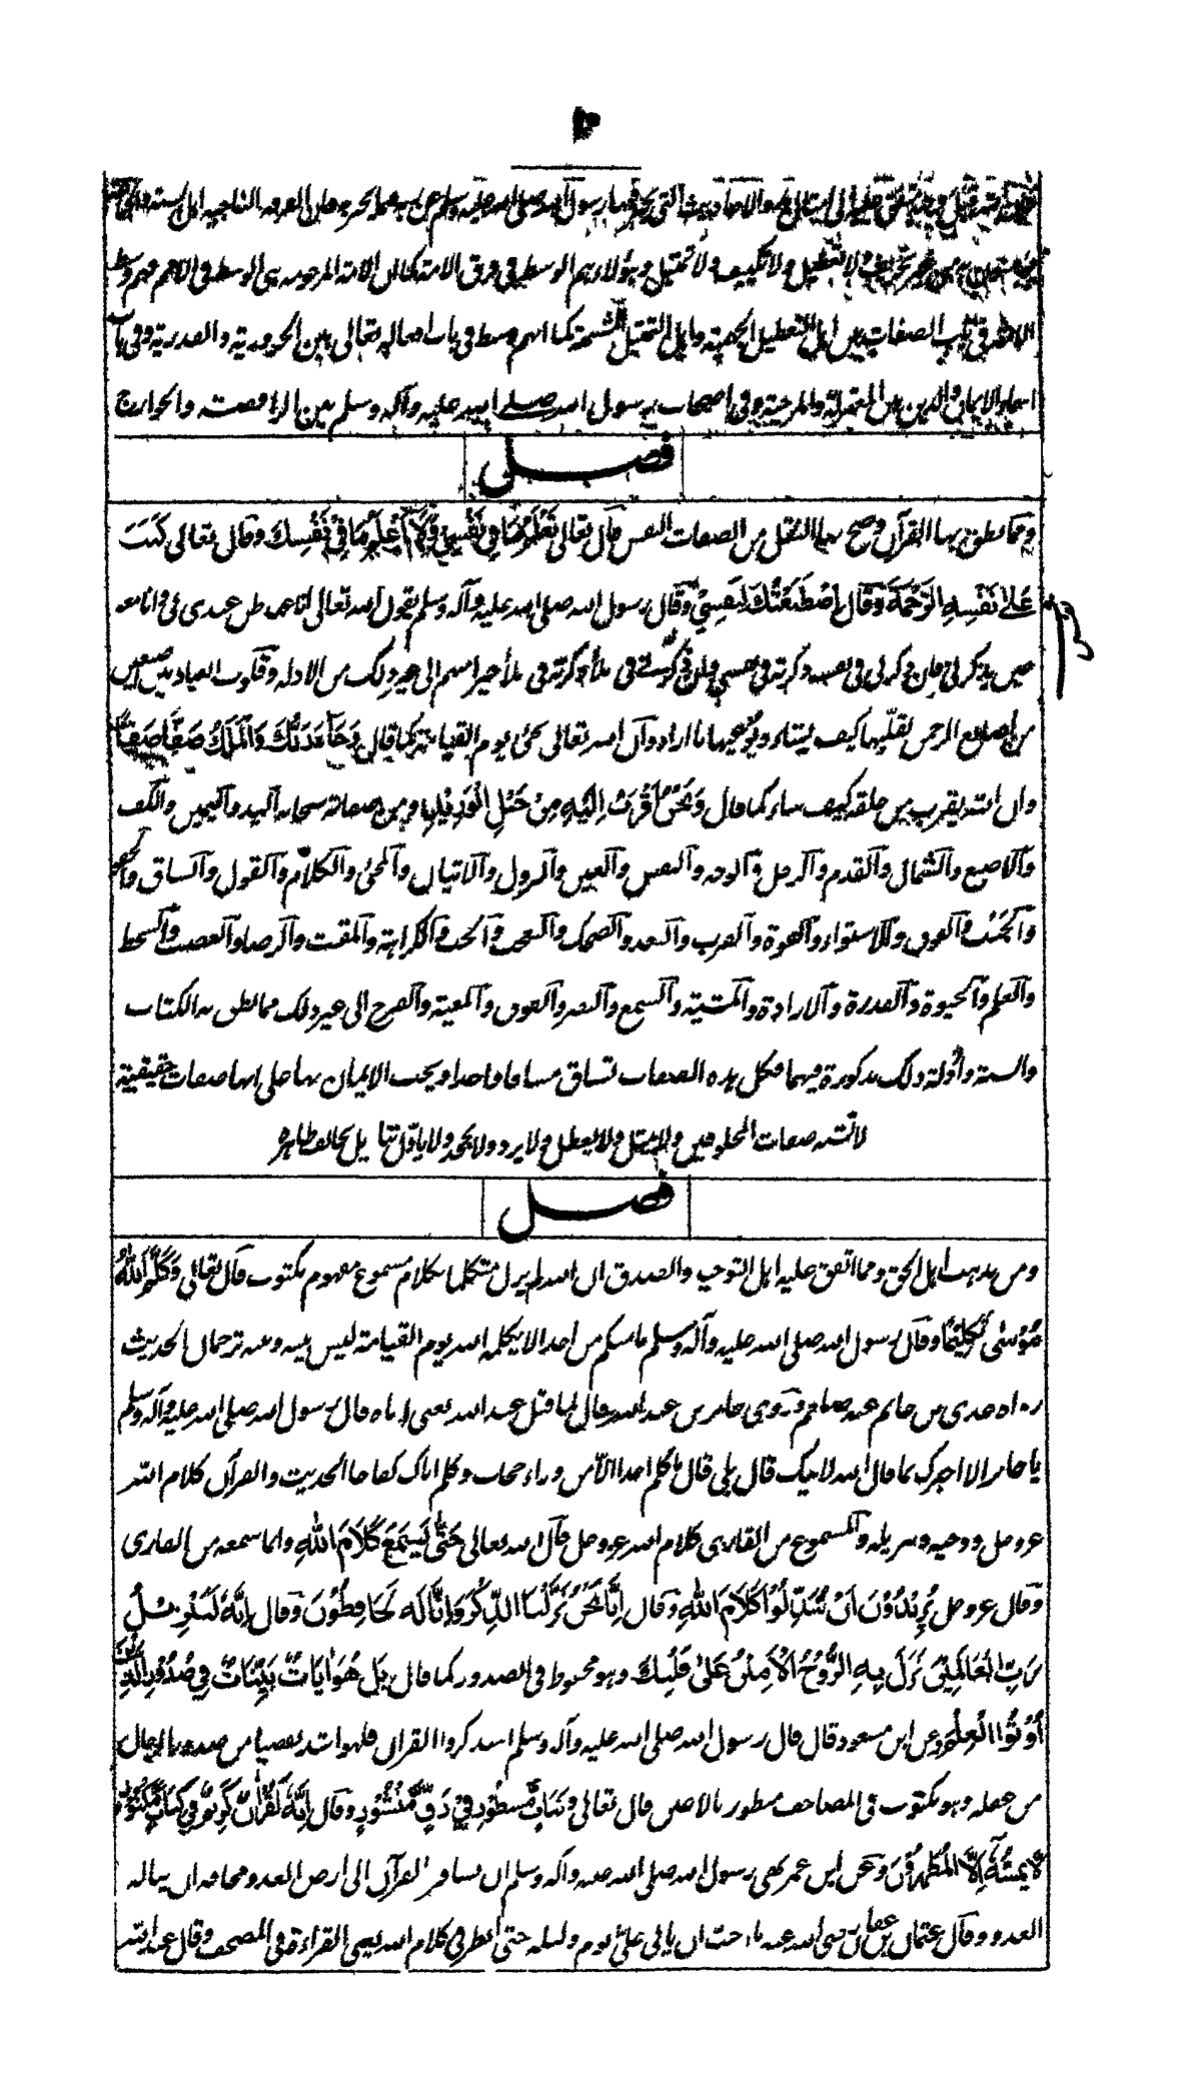 الأحاديث التي يخبر فيها رسول الله صلى الله عليه وسلم عن ربه بما يخبر به فإن الفرقة الناجية أهل السنة والجماعة
من غير تحريف ولا تعطيل ولا تكييف ولا تمثيل وهؤلاء هم الوسط في فرق الامة كما ان الامة المرحومة هي الوسط في الامم فهم وسط
في باب الصفات بين اهل التعطيل الجهمية واهل التمثيل المشبهة كما انهم وسط في باب افعاله تعالى بين الجبرية والقدرية وفي باب
اسماء الايمان والدين بين المعتزلة والمرجية وفي اصحاب رسول الله صلے الله عليه وآله وسلم بين الرافضة والخوارج
فصل
ومما نطق بها القرآن وصح بها النقل من الصفات النفس قال تعالى تَعْلَمُ مَا فِي نَفْسِي وَلَا أَعْلَمُ مَا فِي نَفْسِكَ وقال تعالى كَتَبَ
عَلىٰ نَفْسِهِ الرَّحْمَةَ وَقَالَ وَاصْطَنَعْتُكَ لِنَفْسِيْ وقال رسول الله صلى الله عليه وآله وسلم يقول الله تعالى انا عند ظن عبدى بي وانا معه
حين يذكرني فإن ذكرني في نفسه ذكرته في نفسي وان ذكرني في ملأ ذكرته في ملأ خير منهم الى غير ذلك من الادلة وقلوب العباد بين اصبعين
من اصابع الرحمن يقلبها كيف يشاء ويوعيها ما اراد وان الله تعالى يجئ يوم القيامة كما قال وَجَاءَ رَبُّكَ وَالْمَلَكُ صَفًّا صَفًّا
وان الله يقرب من خلقه كيف شاء كما قال وَنَحْنُ أَقْرَبُ اِلَيْهِ مِنْ حَبْلِ الْوَرِيْدِ ومن صفاته سبحانه اليد واليمين والكف
والاصبع والشمال والقدم والرجل والوجه والنفس والعين والنزول والاتيان والمجئ والكلام والقول والساق والحقو
والجنب والفوق والاستواء والقوة والقرب والبعد والضحك والتعجب والحب والكراهة والمقت والرضا والغضب والسخط
والعلم والحيوة والقدرة والارادة والمشية والسمع والبصر والفوق والمعية والفرح الى غير ذلك مما نطق به الكتاب
والسنة وادلة ذلك مذكورة فيهما فكل هذه الصفات تساق مساقا واحدا ويجب الايمان بها على انها صفات حقيقية
لا تشبه صفات المخلوقين ولا يمثل ولا يعطل ولا يرد ولا يجحد ولا يأول بتاويل يخالف ظاهره
فصل
ومن مذهب اهل الحق ومما اتفق عليه اهل التوحيد والصدق ان الله لم يزل متكلما بكلام مسموع مفهوم مكتوب قال تعالى وَكَلَّمَ اللّٰهُ
مُوْسٰى تَكْلِيْمًا وقال رسول الله صلى الله عليه وآله وسلم ما منكم من احد الا يكلمه الله يوم القيامة ليس بينه وبينه ترجمان الحديث
رواه عدى بن حاتم عنه صلعم وروى جابر بن عبد الله قال لما قتل عبد الله يعني اباه قال رسول الله صلى الله عليه وآله وسلم
يا جابر الا اخبرك بما قال الله لابيك قال بلى قال ما كلم احدا الا من وراء حجاب وكلم اباك كفاحا الحديث والقرآن كلام الله
عز وجل ووحيه وتنزيله والمسموع من القارى كلام الله عز وجل قال الله تعالى حَتّٰى يَسْمَعَ كَلَامَ اللّٰهِ وانما سمعه من القارى
وقال عز وجل يُرِيْدُوْنَ اَنْ يُبَدِّلُوْا كَلَامَ اللّٰهِ وقال اِنَّا نَحْنُ نَزَّلْنَا الذِّكْرَ وَاِنَّا لَه لَحَافِظُوْنَ وقال اِنَّهُ لَتَنْزِيْلُ
رَبِّ الْعَالَمِيْنَ نَزَلَ بِهِ الرُّوْحُ الْاَمِيْنُ عَلٰى قَلْبِكَ وهو محفوظ في الصدور كما قال بَلْ هُوَ اٰيَاتٌ بَيِّنَاتٌ فِي صُدُوْرِ الَّذِيْنَ
اُوْتُوا الْعِلْمَ وعن ابن مسعود قال قال رسول الله صلى الله عليه وآله وسلم استذكروا القران فلهو اشد تفصيا من صدور الرجال
من عقله وهو مكتوب في المصاحف منظور بالاعين قال تعالى وَكِتَابٍ مَّسْطُوْرٍ فِيْ رَقٍّ مَّنْشُوْرٍ وقال اِنَّهُ لَقُرْاٰنٌ كَرِيْمٌ فِيْ كِتَابٍ مَّكْنُوْنٍ
لَّا يَمَسُّهُ اِلَّا الْمُطَهَّرُوْنَ وعن ابن عمر نهى رسول الله صلى الله عليه وآله وسلم ان يسافر بالقرآن الى ارض العدو مخافة ان يناله
العدو وقال عثمان بن عفان رضى الله عنه ما احب ان ياتي علىّ يوم وليلة حتى انظر في كلام الله يعنى القراءة في المصحف وقال عبد الله